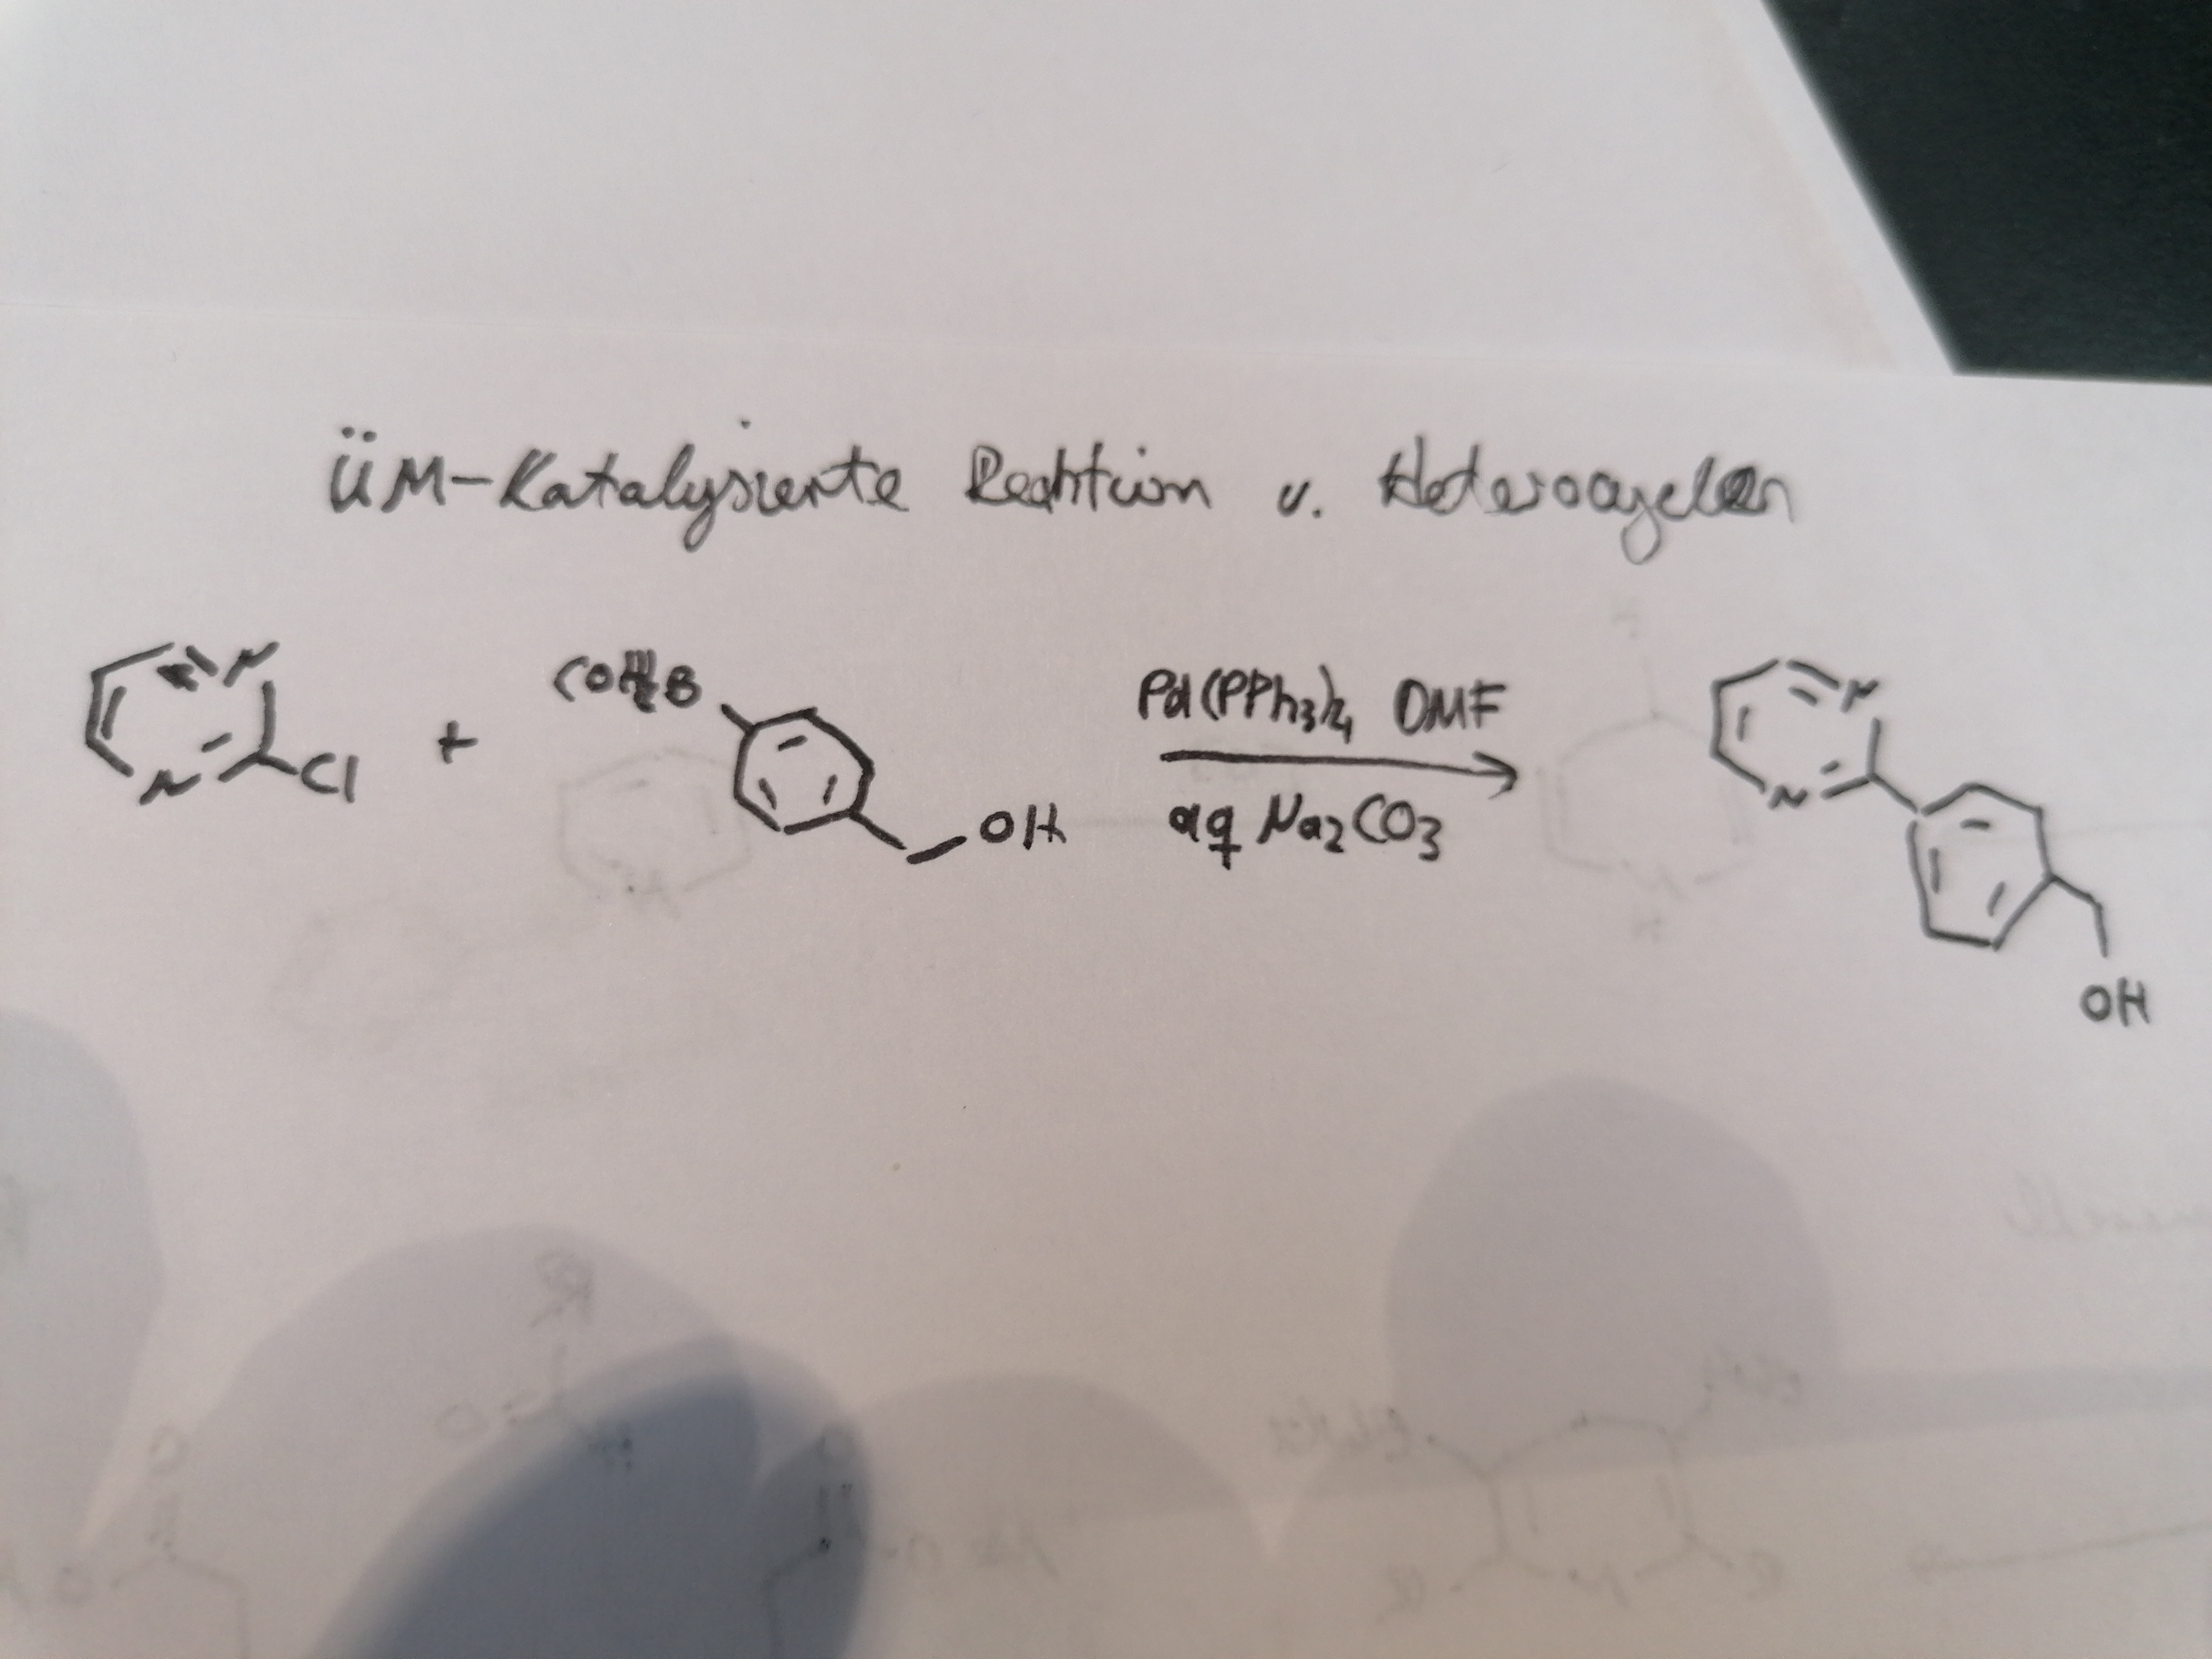 üM-Katalysierte Reaktion v. Heterocyclen
N
N
Cl
+
B
OH
Pd(PPh3)4 DMF
aq Na2CO3
N
N
OH